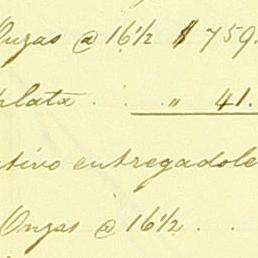 Onzas @ 16 1/2 $ 759.
plata . . " 41.
ativo entregadole
Onzas @ 16 1/2 . .